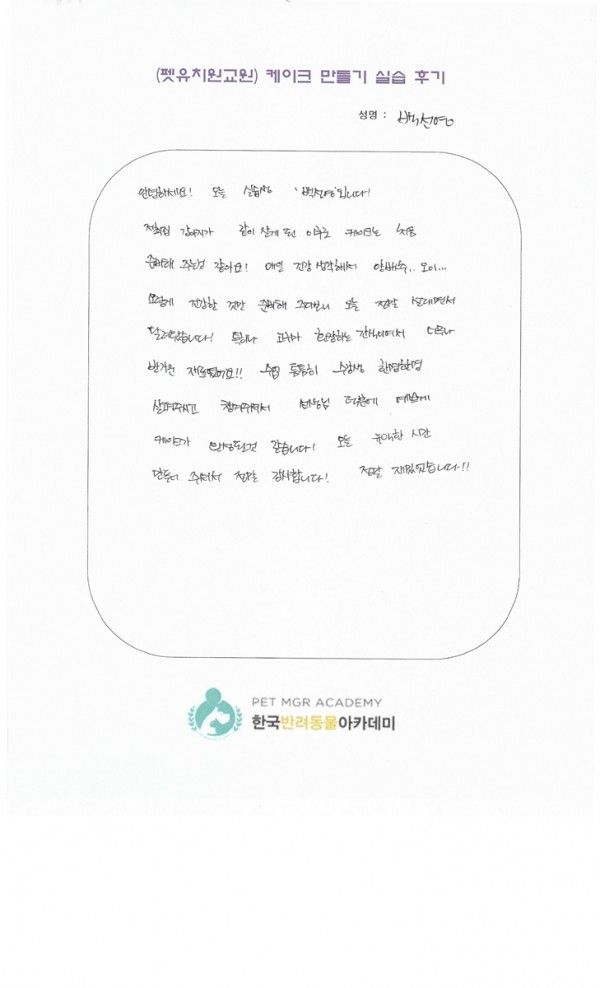 (펫유치원교원) 케이크 만들기 실습 후기
성명 : 백선영
안녕하세요! 오늘 실습생 '백선영'입니다!
저희집 강아지가 같이 살게 된 이후로 케이크는 처음
준비해 주는것 같아요! 매일 건강 생각해서 양배추, 오이...
이렇게 건강한 것만 준비해 주다보니 오늘 정말 설레면서
달려왔습니다! 특히나 고구마 환장하는 강아지여서 더욱나
반가운 재료였어요!! 수업 틈틈히 수강생 한명한명
살펴주시고 챙겨주셔서 선생님 덕분에 예쁘게
케이크가 완성된것 같습니다! 오늘 유익한 시간
만들어 주셔서 정말 감사합니다! 정말 재밌었습니다!!
PET MGR ACADEMY
한국반려동물아카데미